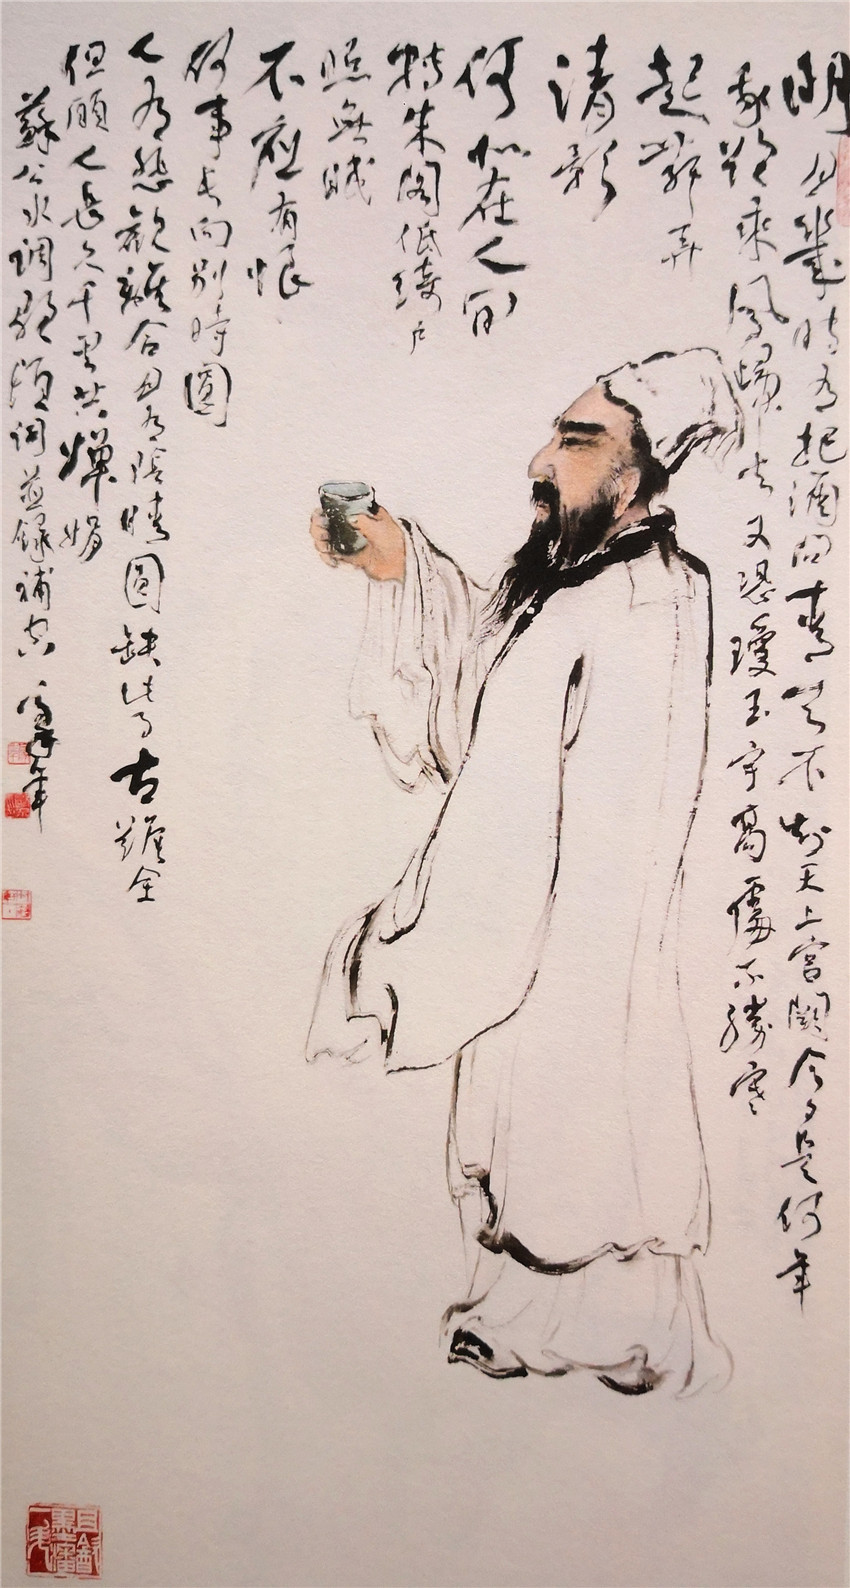 明月幾時有把酒問青天不知天上宮闕今夕是何年
我欲乘風歸去又恐瓊玉宇高處不勝寒
起舞弄
清影
何似在人間
轉朱閣低綺户
照無眠
不應有恨
何事長向別時圓
人有悲歡離合月有陰晴圓缺此事古難全
但願人長久千里共嬋娟
蘇公水調歌頭詞並錄補空
且飲墨瀋一升